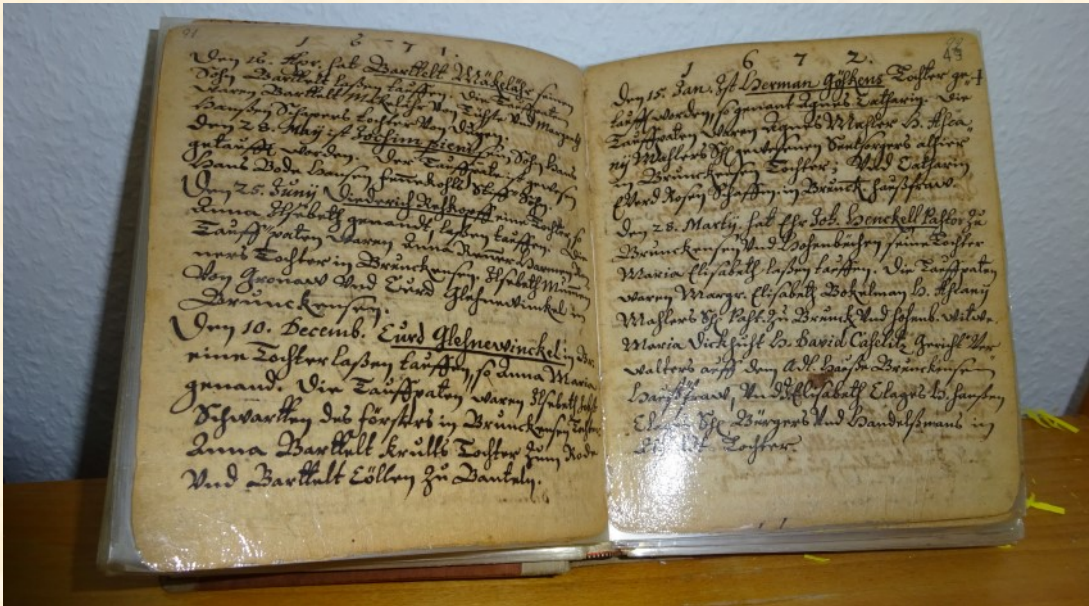 1 6 7 1.
Den 16. Apr. hat Barttelt Mäkelahr seinen
Sohn Barttelt laßen tauffen. Die Tauffpaten
waren Barttelt von und
Hansen Schapers tochter von
Den 28. May ist Jochim ein Sohn Hans
getaufft worden. Der Tauffpate ist gewesen
Hans Bode Hansen Sohn
Den 25. Juny Diederich Rehkopff eine Tochter, so
Anna Ilsebeth genandt, laßen tauffen. Die
Tauffpaten waren Anna
ners Tochter in Brunckensen Ilsebeth
von Gronaw und Curd Glehnewinckel in
Brunckensen.
Den 10. Decemb. Curd Glehnewinckel in Br.
eine Tochter laßen tauffen, so Anna Maria
genand. Die Tauffpaten waren Ilsebeth
Schwartten des försters in Brunckensen Tochter
Anna Barttelt Krulls Tochter zum Rode
Und Barttelt Cöllen zu Banteln.
1 6 7 2.
Den 15. Jan. Ist Herman Gölkens Tochter ge-
taufft worden, so genant Agnes Catharin. Die
Tauffpaten waren Agnes Mahler H. Asca
nij Mahlers Sehl. gewesenen Seelsorgers alhier
in Brunckensen Tochter; Und Catharin
Everd Rosen in Brunck. haußfraw.
Den 28. Martij hat Ehr Joh. Henckell Pastor zu
Brunckensen Und Hohenbüchen seine Tochter
Maria Elisabeth laßen tauffen. Die Tauffpaten
waren Margr. Elisabeth Bokelman H. Ascanij
Mahlers Sehl. Past. zu Brunck. Und Hohenb. witwe.
Maria Dickhüht H. David Gericht Ver
walters auff dem Adl. Hause Brunckensen
Haußfraw, Und Elisabeth Clages H. Hansen
Clages Sehl. Bürgers Und Handelßmans in
Tochter.